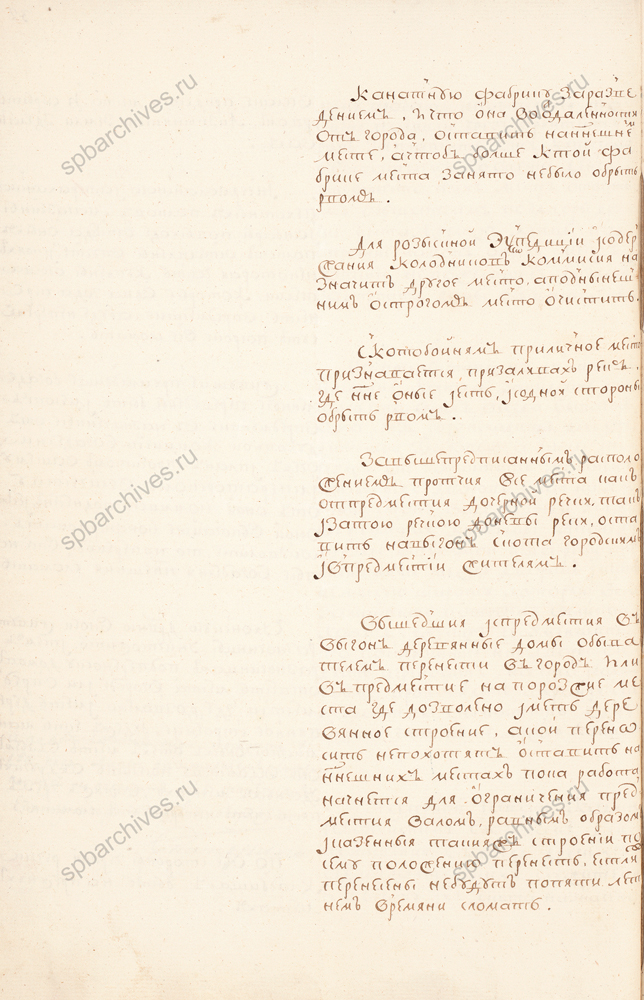 Канатную фабрику заразве
дениемъ, и что она вотдаленности
отъ города, оставить нанынешне
месте, а чтобъ больше ктой фа
брике места занято небыло обрыть
рвомъ.
Для розыскной Экспедиціи исодер
жания колодниковъ коммисия на
значитъ другое место, аподнынеш
нимъ острогомъ место очистить.
Скотобойнямъ приличное место
признавается, призаливахъ реки,
где ныне оные есть, содной стороны
обрыть рвомъ.
Завышепредписаннымъ располо
жениемъ протчия все места какъ
отпредместия дочерной речки, такъ
изатою речкою доневы реки, оста
вить навыгонъ скота городскимъ
ивпредместіи жителямъ.
Вышедшия испредместия въ
выгонъ деревянные домы обыва
телемъ перенести въ городъ или
въ предместие на порозжие ме
ста где дозволено иметь дере
вянное строение, акои перено
сить непохотятъ оставить на
ннешнихъ местахъ пока работа
начнется для ограничения пред
местия валомъ, равнымъ образом
иказенныя такияжъ строении по
сему положению перенесть, естли
перенесены небудутъ попяти лет
немъ времяни сломать.
spbarchives.ru
spbarchives.ru
spbarchives.ru
spbarchives.ru
spbarchives.ru
spbarchives.ru